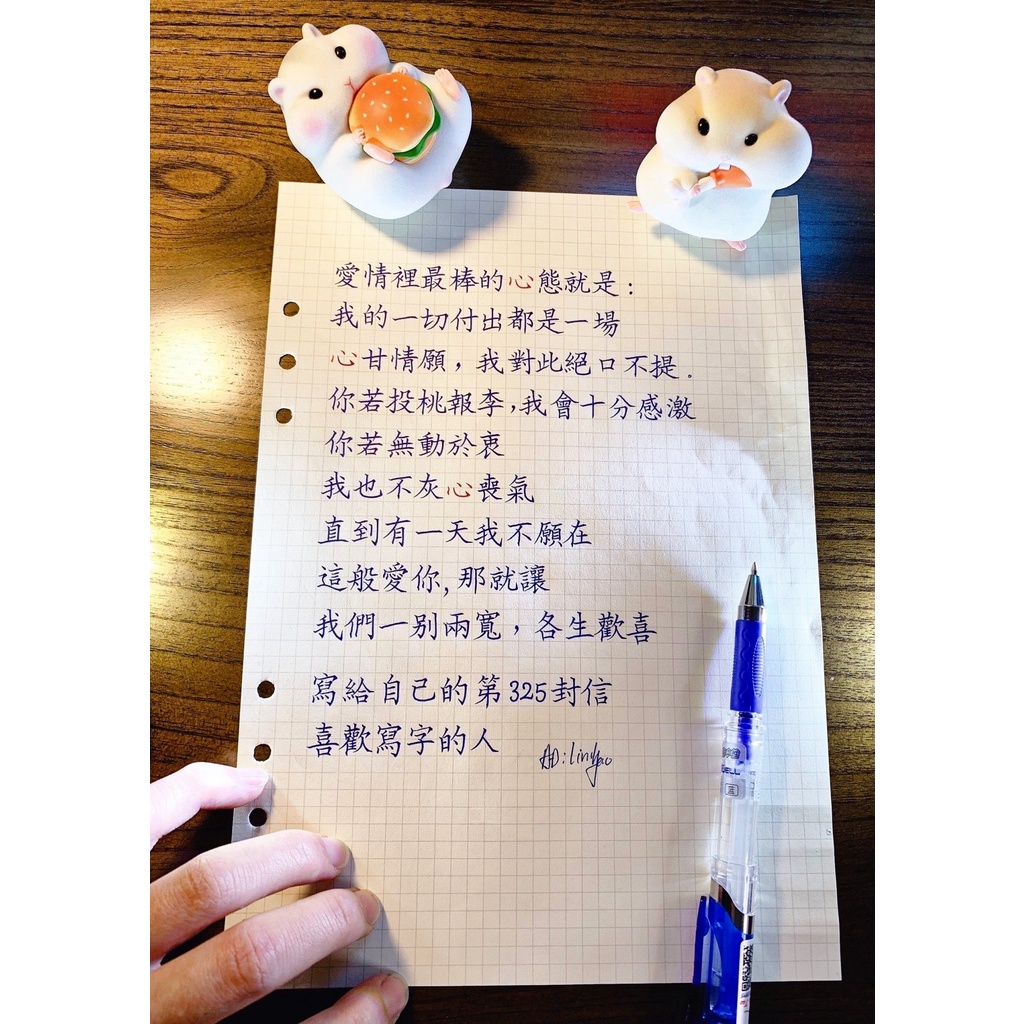 愛情裡最棒的心態就是:
我的一切付出都是一場
心甘情願，我對此絕口不提。
你若投桃報李,我會十分感激
你若無動於衷
我也不灰心喪氣
直到有一天我不願在
這般愛你,那就讓
我們一别兩寬，各生歡喜
寫給自己的第325封信
喜歡寫字的人